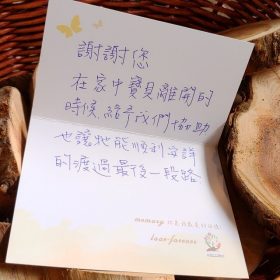 謝謝您
在家中寶貝離開的
時候,給予我們協助
也讓牠能順利安詳
的渡過最後一段路.
memory
love forever